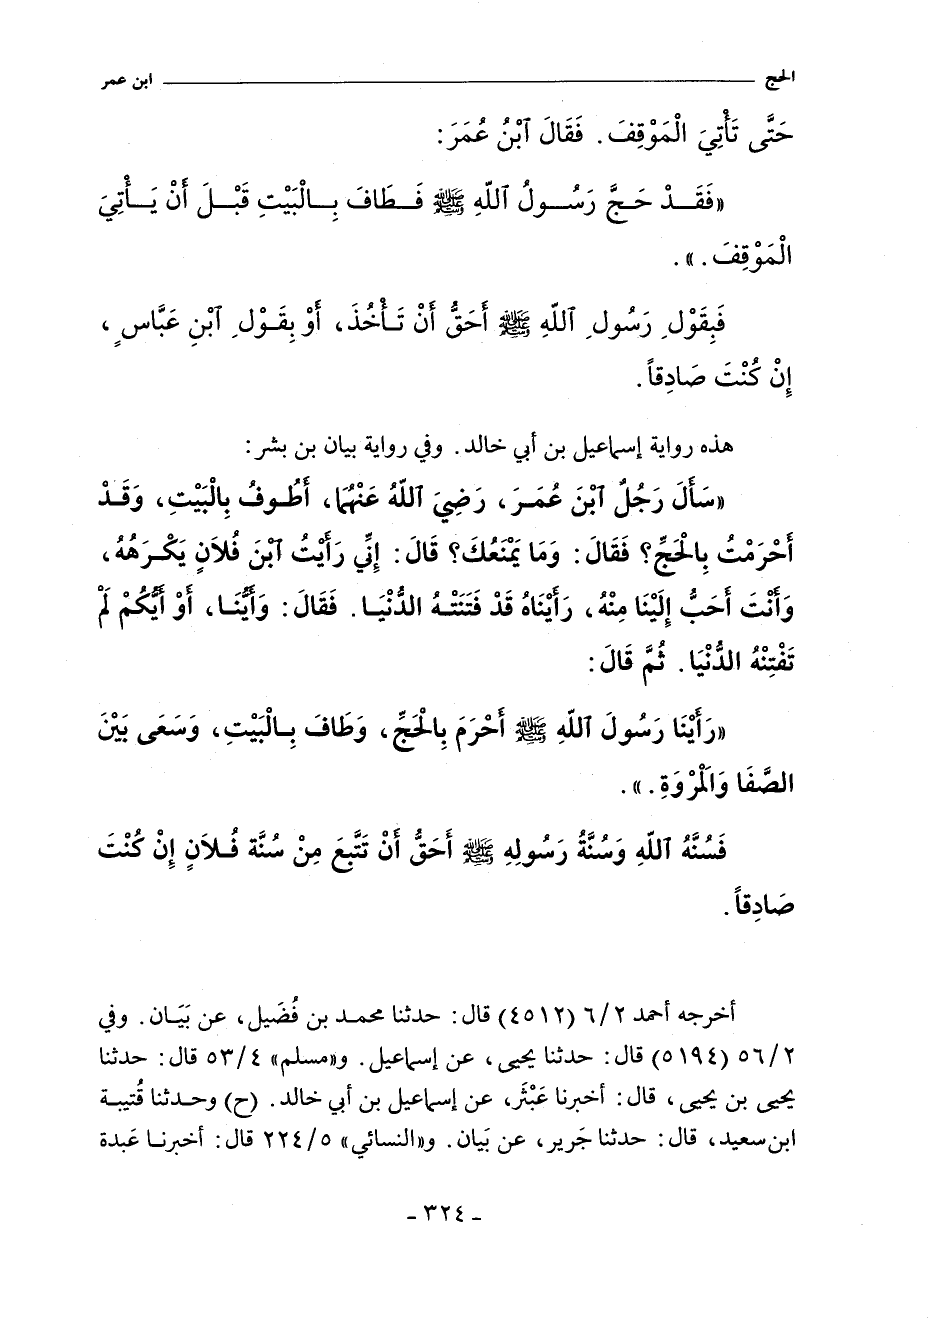 الحج ابن عمر
حَتَّى تَأْتِيَ الْمَوْقِفَ. فَقَالَ ٱبْنُ عُمَرَ:
«فَقَدْ حَجَّ رَسُولُ ٱللّهِ ﷺ فَطَافَ بِالْبَيْتِ قَبْلَ أَنْ يَأْتِيَ
الْمَوْقِفَ.».
فَبِقَوْلِ رَسُولِ ٱللّهِ ﷺ أَحَقُّ أَنْ تَأْخُذَ، أَوْ بِقَوْلِ ٱبْنِ عَبَّاسٍ،
إِنْ كُنْتَ صَادِقاً.
هذه رواية إسماعيل بن أبي خالد. وفي رواية بيان بن بشر:
«سَأَلَ رَجُلٌ ٱبْنَ عُمَرَ، رَضِيَ ٱللّهُ عَنْهُمَا، أَطُوفُ بِالْبَيْتِ، وَقَدْ
أَحْرَمْتُ بِالْحَجِّ؟ فَقَالَ: وَمَا يَمْنَعُكَ؟ قَالَ: إِنِّي رَأَيْتُ ٱبْنَ فُلاَنٍ يَكْرَهُهُ،
وَأَنْتَ أَحَبُّ إِلَيْنَا مِنْهُ، رَأَيْنَاهُ قَدْ فَتَنَتْهُ الدُّنْيَا. فَقَالَ: وَأَيُّنَا، أَوْ أَيُّكُمْ لَمْ
تَفْتِنْهُ الدُّنْيَا. ثُمَّ قَالَ:
«رَأَيْنَا رَسُولَ ٱللّهِ ﷺ أَحْرَمَ بِالْحَجِّ، وَطَافَ بِالْبَيْتِ، وَسَعَى بَيْنَ
الصَّفَا وَالْمَرْوَةِ.».
فَسُنَّهُ ٱللّهِ وَسُنَّةُ رَسُولِهِ ﷺ أَحَقُّ أَنْ تَتَّبِعَ مِنْ سُنَّة فُلاَنٍ إِنْ كُنْتَ
صَادِقاً.
أخرجه أحمد ٦/٢ (٤٥١٢) قال: حدثنا محمد بن فُضَيل، عن بَيَان. وفي
٥٦/٢ (٥١٩٤) قال: حدثنا يحيى، عن إسماعيل. و«مسلم» ٥٣/٤ قال: حدثنا
يحيى بن يحيى، قال: أخبرنا عَبْثَر، عن إسماعيل بن أبي خالد. (ح) وحدثنا قُتيبة
ابن سعيد، قال: حدثنا جَرير، عن بَيان. و«النسائي» ٢٢٤/٥ قال: أخبرنا عَبدة
- ٣٢٤ -